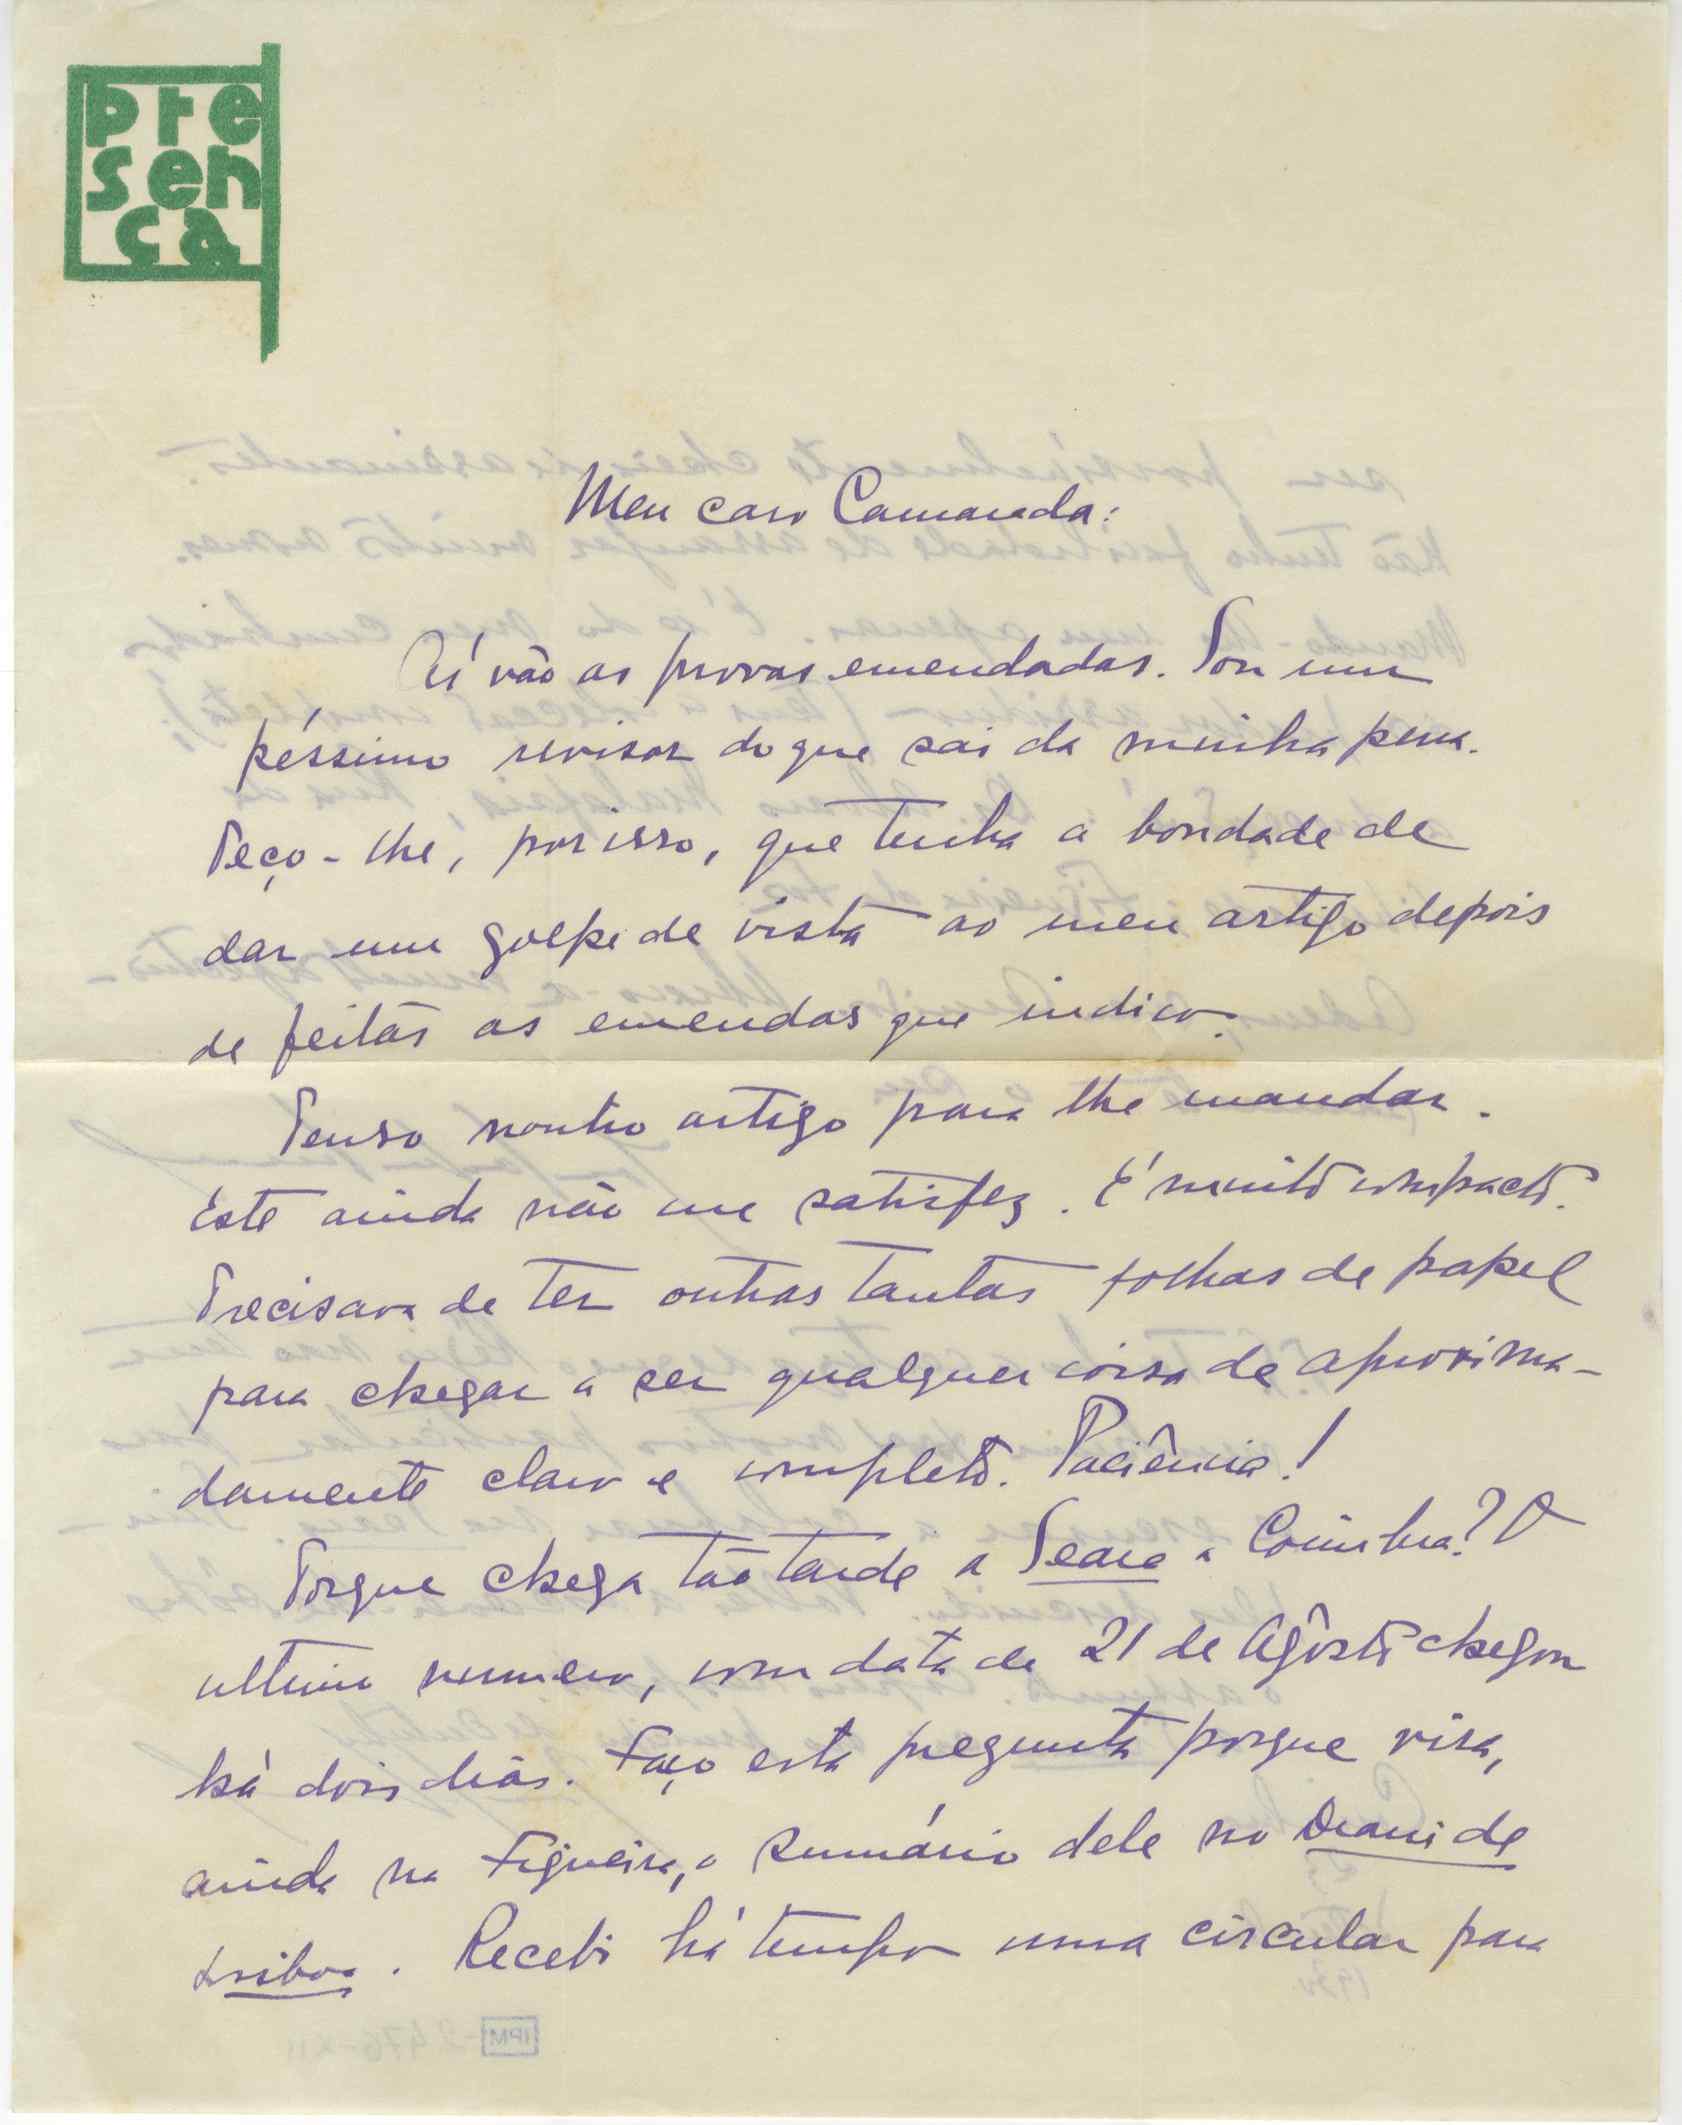 pre
sen
ça
Meu caro Camarada:
Aí vão as provas emendadas. Sou um
péssimo revisor do que sai da minha pena.
Peço-lhe, por isso, que tenha a bondade de
dar um golpe de vista ao meu artigo depois
de feitas as emendas que indico.
Penso noutro artigo para lhe mandar.
Este ainda não me satisfez. É muito compacto.
Precisava de ter outras tantas folhas de papel
para chegar a ser qualquer coisa de aproxima-
damente claro e completo. Paciência!
Porque chega tão tarde a Seara a Coimbra? O
ultimo numero, com data de 21 de Agôsto chegou
há dois dias. Faço esta pregunta porque vira,
ainda na Figueira, o sumário dele no Diario de
Lisboa. Recebi há tempo uma circular para
IPM